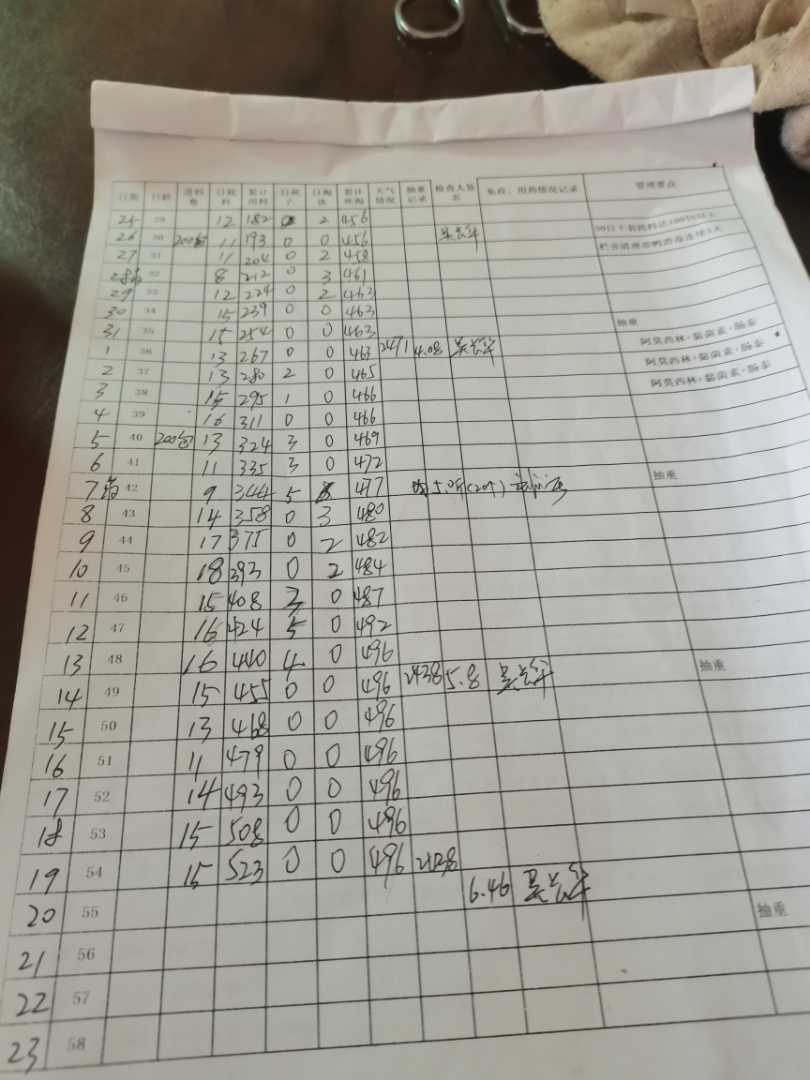 日期 日龄 进料卷 日耗料 累计用料 日死子 日淘汰 累计死淘 天气情况 抽重记录 检查人签名 免疫、用药情况记录 管理要点
25 29 12 182 0 2 456
26 30 200包 11 193 0 0 456
27 31 11 204 0 2 458
28 32 8 212 0 3 461
29 33 12 224 0 2 463
30 34 15 239 0 0 463
31 35 15 254 0 0 463 抽重
1 36 13 267 0 0 463 2471 4.08 阿莫西林·黏菌素·肠泰
2 37 13 280 2 0 465 阿莫西林·黏菌素·肠泰
3 38 15 295 1 0 466 阿莫西林·黏菌素·肠泰
4 39 16 311 0 0 466
5 40 200包 13 324 3 0 469
6 41 11 335 3 0 472
7 42 9 344 5 477 5.08 抽重
8 43 14 358 0 3 480
9 44 17 375 0 2 482
10 45 18 393 0 2 484
11 46 15 408 3 0 487
12 47 16 424 5 0 492
13 48 16 440 4 0 496
14 49 15 455 0 0 496 2438 5.8 抽重
15 50 13 468 0 0 496
16 51 11 479 0 0 496
17 52 14 493 0 0 496
18 53 15 508 0 0 496
19 54 15 523 0 0 496
20 55 6.46 抽重
21 56
22 57
23 58